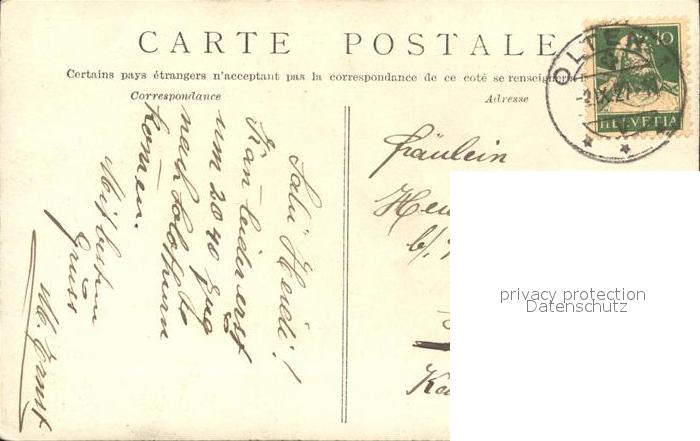 CARTE POSTALE
Certains pays étrangers n'acceptant pas la correspondance de ce coté se renseigner
Correspondance
Adresse
10
HELVETIA
OLTEN 1
Salü Heidi!
Kan leider erst
um 2040 Zug
nach Solothurn
komen.
Mit bestem
Gruss
Ernst
Fräulein
privacy protection
Datenschutz